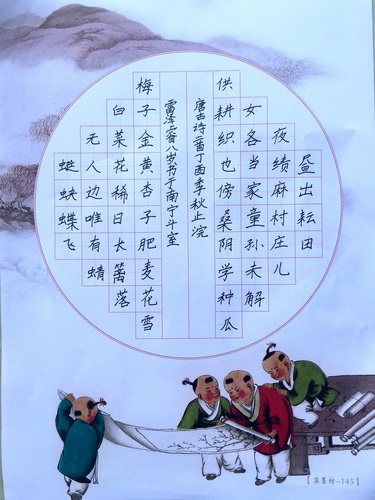 昼出耘田
夜绩麻村庄儿
女各当家童孙未解
供耕织也傍桑阴学种瓜
唐古诗二首丁酉季秋上浣
雷泽睿八岁书于南宁斗室
梅子金黄杏子肥麦花雪
白菜花稀日长篱落
无人边唯有蜻
蜓蛱蝶飞
【苏墨坊-145】